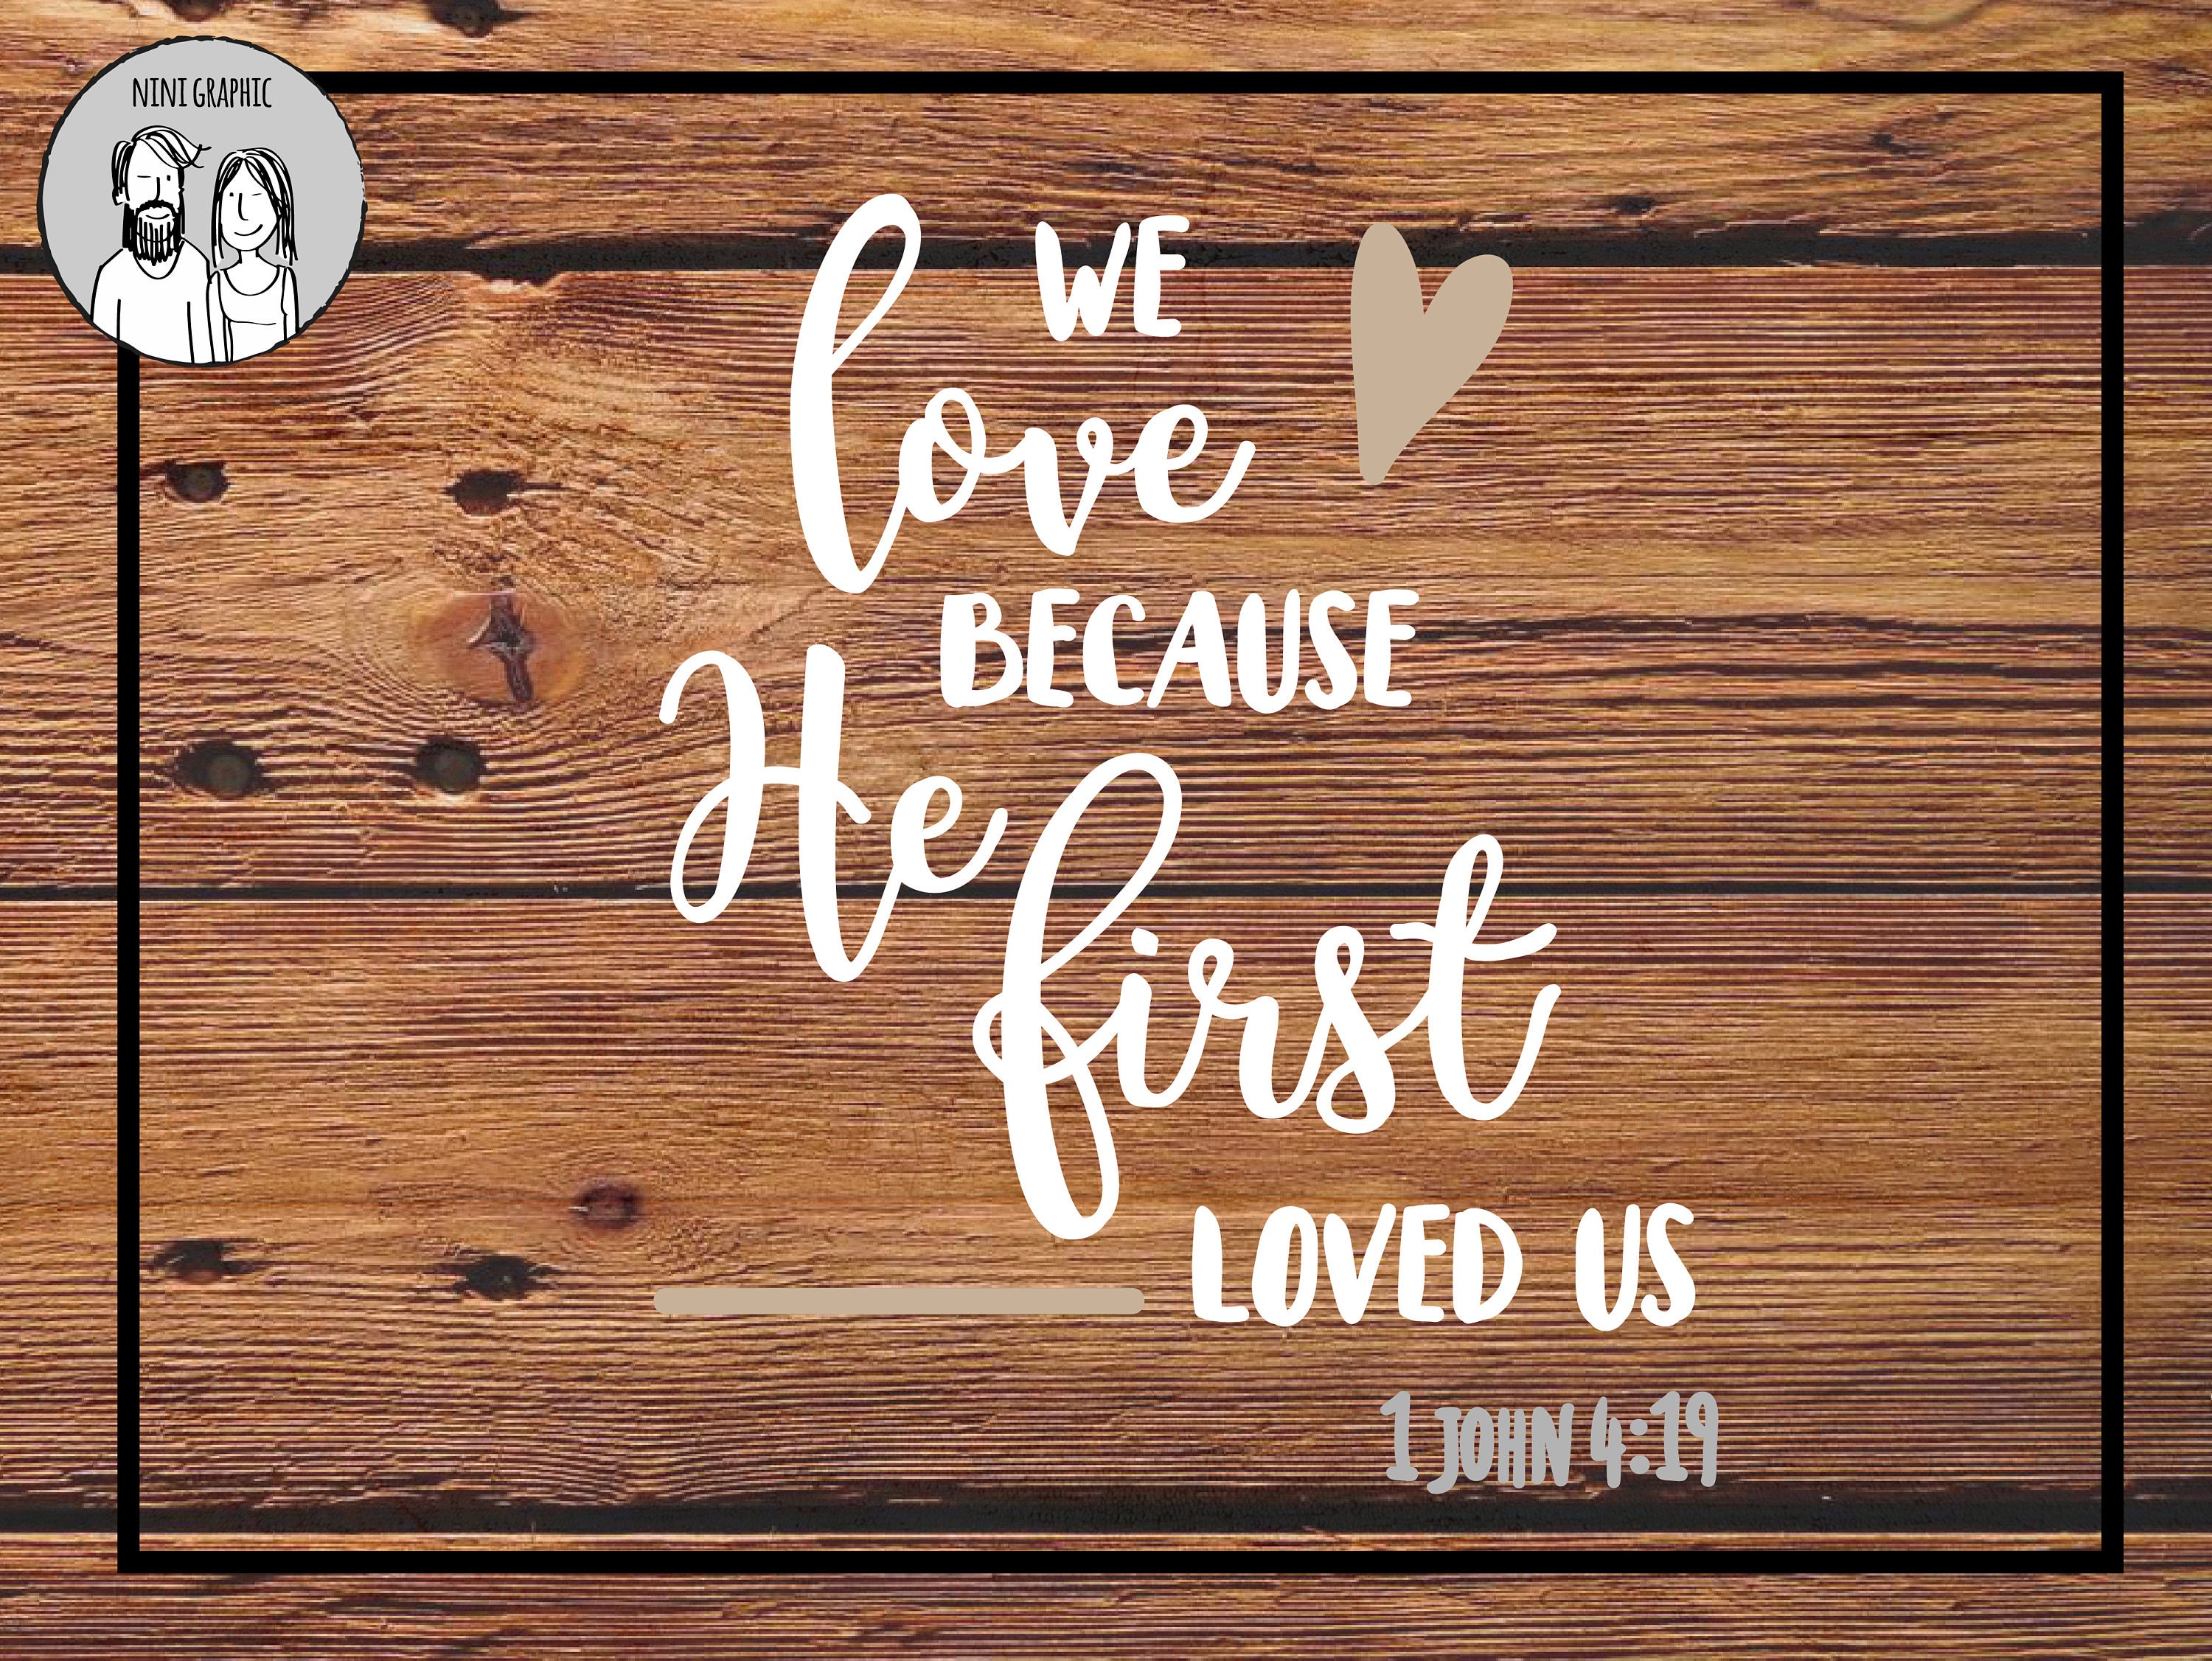 NINI GRAPHIC
WE
love
BECAUSE
He
first
LOVED US
1 JOHN 4:19